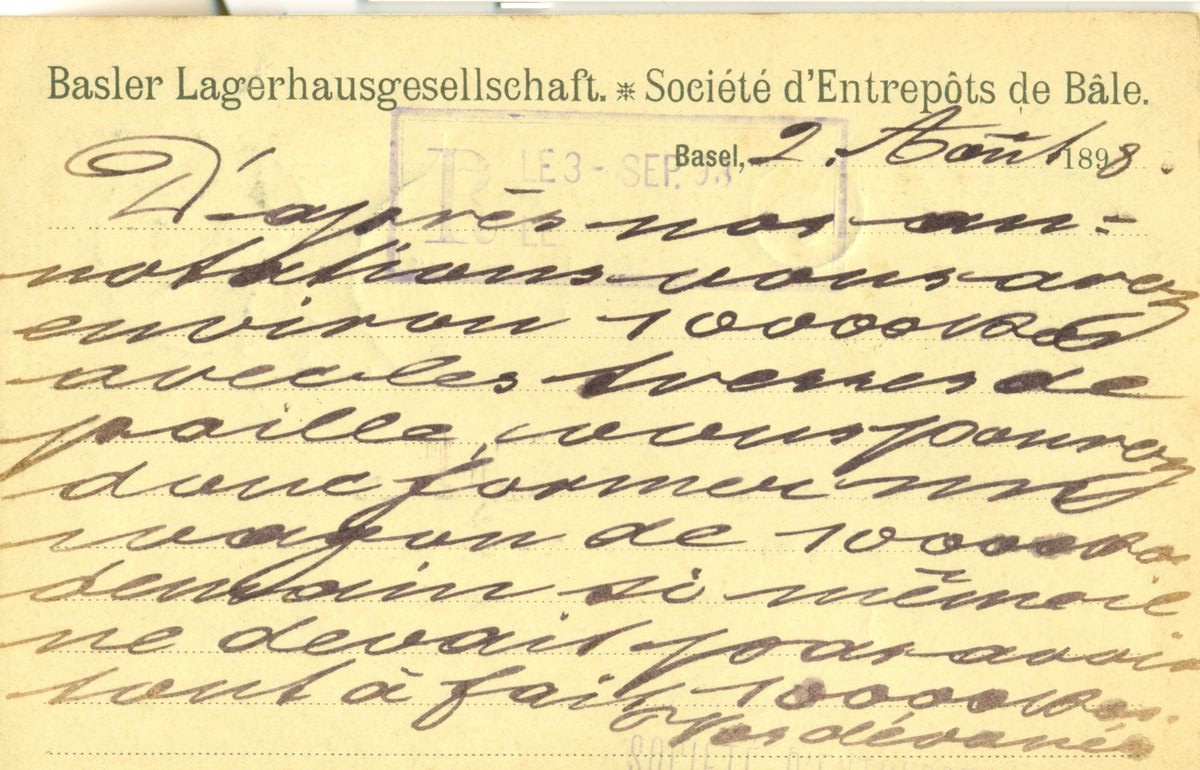 Basler Lagerhausgesellschaft. * Société d'Entrepôts de Bâle.
Basel, 2. Août 1898.
R LE 3 - SEP. 98
D'après nos an-
notations vous avez
environ 10000 Ko
avec les tresses de
paille, vous pourez
donc former un
wagon de 10000 Ko
demain si même il
ne devait pas avoir
tout à fait 10000 Kos.
Vos dévoués
SOCIÉTÉ D'ENTREPÔTS